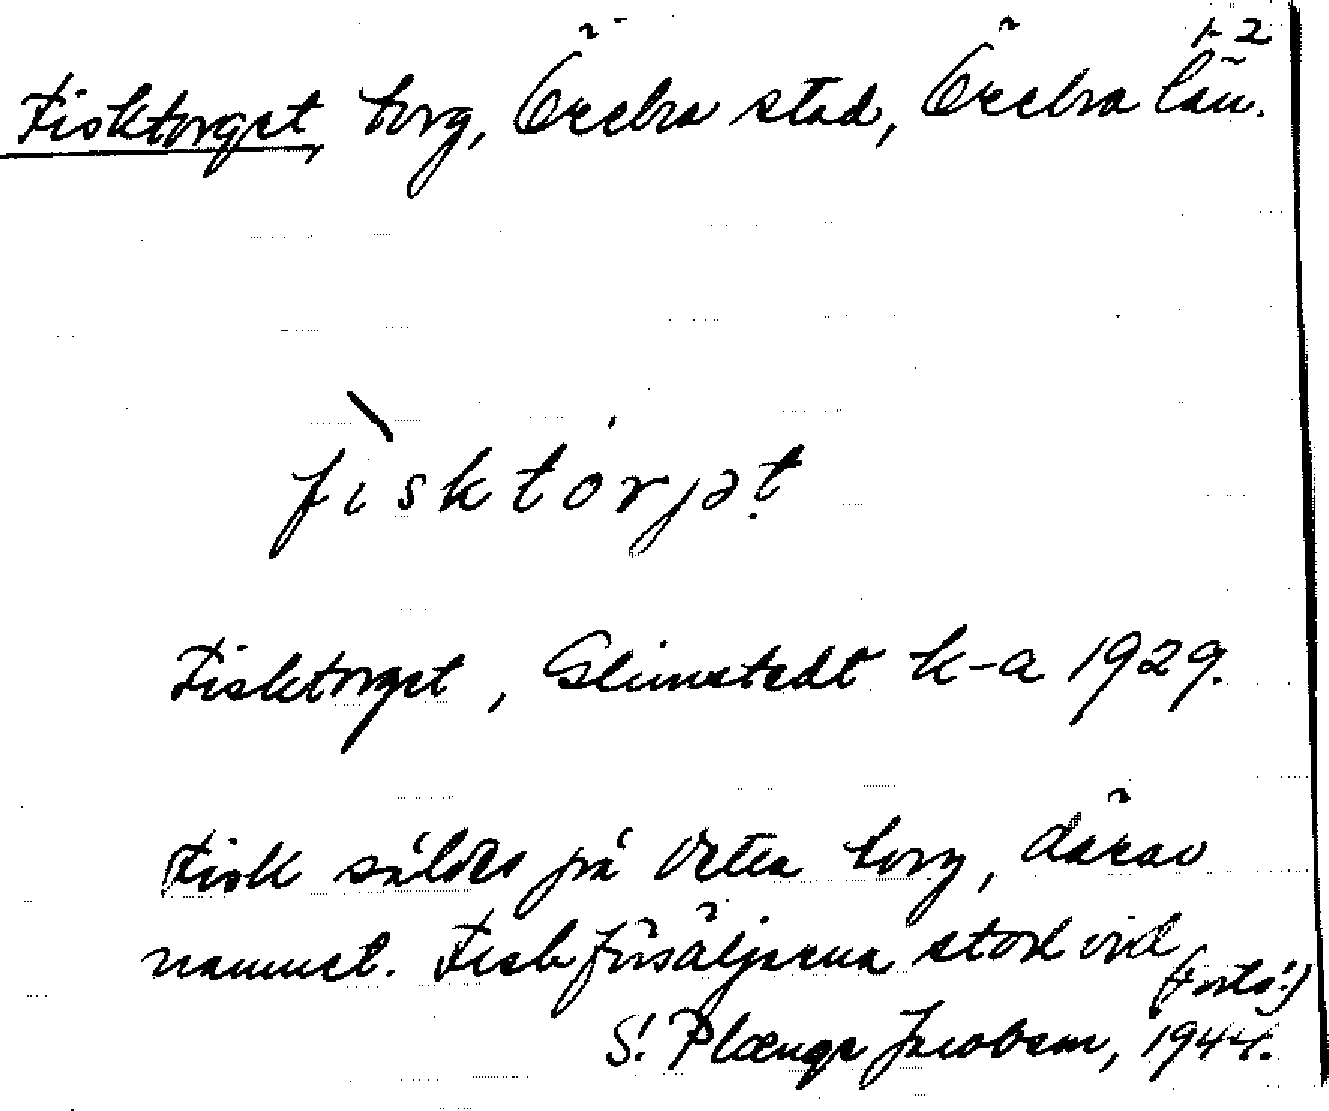 1-2
Fisktorget, torg, Örebro stad, Örebro län.
fìsktórjət
Fisktorget, Glimstedt k-a 1929.
Fisk såldes på detta torg, därav
namnet. Fiskförsäljarna stod vid
(forts.)
S. Plænge Jacobson, 1944.